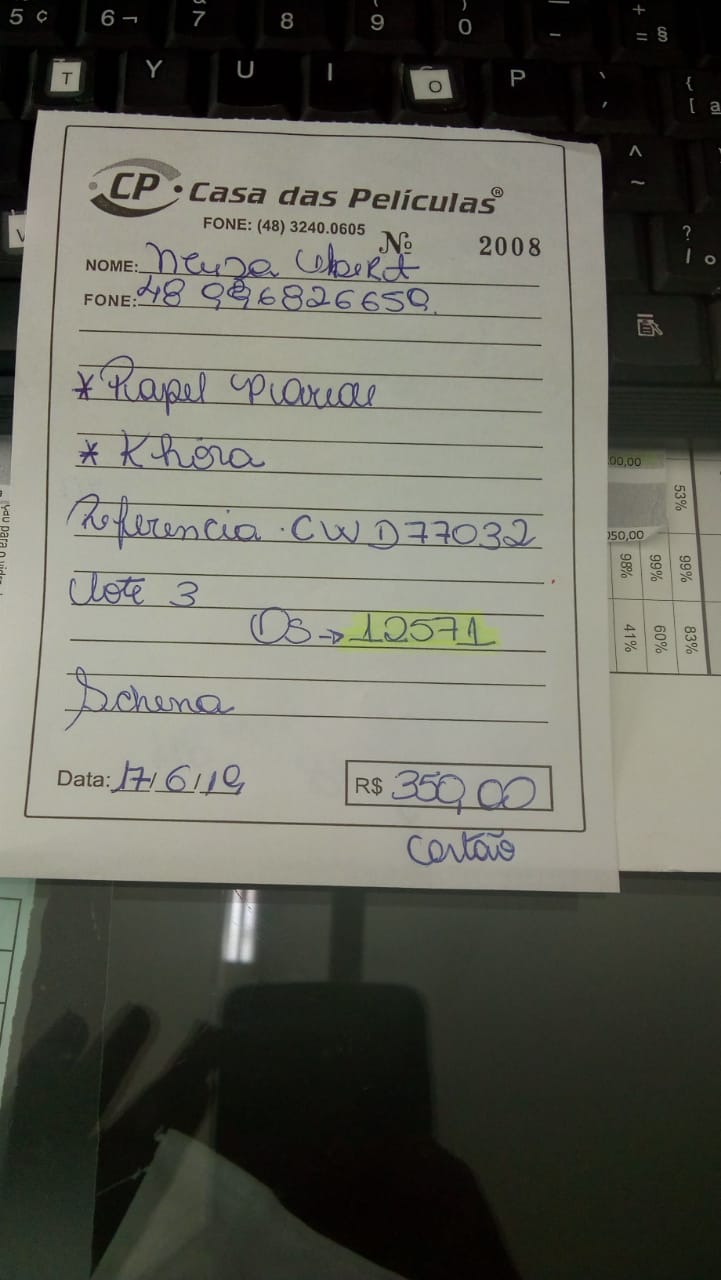 5 ¢ 6 ¬ 7 8 9 ) 0 _ - + = §
T Y U I O P ` ´ { [ a
^ ~
? / o
CP Casa das Películas®
FONE: (48) 3240.0605
Nº 2008
NOME: Neuza
FONE: 48 996826659
* Papel
* Khóra
Referencia . CWD77032
Lote 3
OS → 12571
Schena
Data: 17/6/19
R$ 350,00
cartão
00,00
53%
950,00
98% 99% 99%
41% 60% 83%